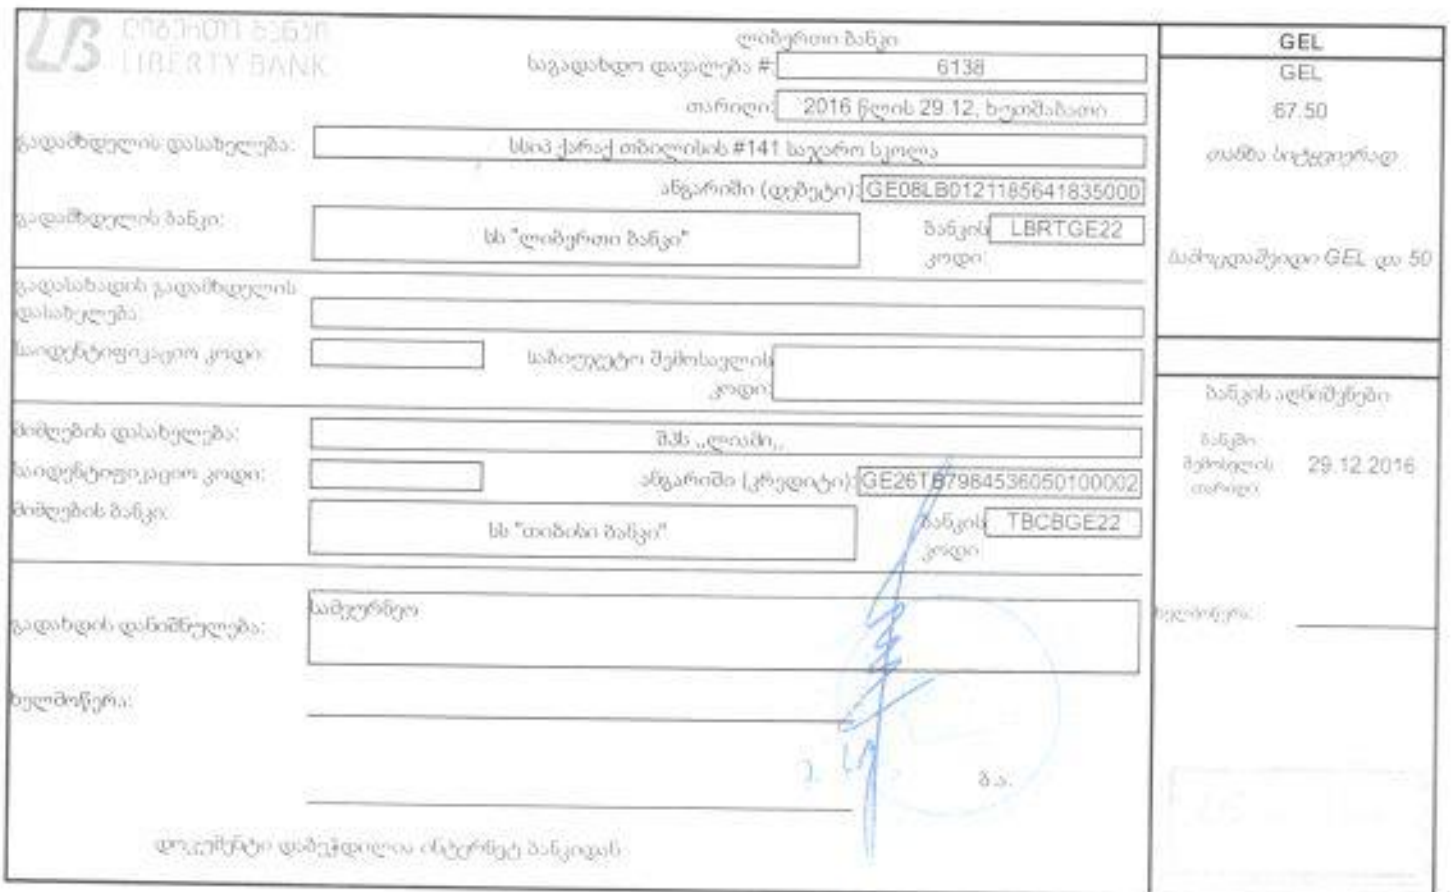 ლიბერთი ბანკი
LIBERTY BANK
ლიბერთი ბანკი
საგადახდო დავალება # 6138
თარიღი: 2016 წლის 29.12, ხუთშაბათი
გადამხდელის დასახელება: სსიპ ქარაქ თბილისის #141 საჯარო სკოლა
ანგარიში (დებეტი): GE08LB0121185641835000
გადამხდელის ბანკი: სს "ლიბერთი ბანკი" ბანკის LBRTGE22
კოდი:
გადასახადის გადამხდელის
დასახელება:
საიდენტიფიკაციო კოდი: საბიუჯეტო შემოსავლის
კოდი:
მიმღების დასახელება: შპს ,,ლიამი,,
საიდენტიფიკაციო კოდი: ანგარიში (კრედიტი): GE26TB7984536050100002
მიმღების ბანკი: სს "თიბისი ბანკი" ბანკის TBCBGE22
კოდი:
გადახდის დანიშნულება: სამეურნეო
ხელმოწერა:
ბ.ა.
დოკუმენტი დაბეჭდილია ინტერნეტ ბანკიდან
GEL
GEL
67.50
თანხა სიტყვიერად
სამოცდაშვიდი GEL და 50
ბანკის აღნიშვნები
ბანკში
შემოსვლის 29.12.2016
თარიღი:
ხელმოწერა: